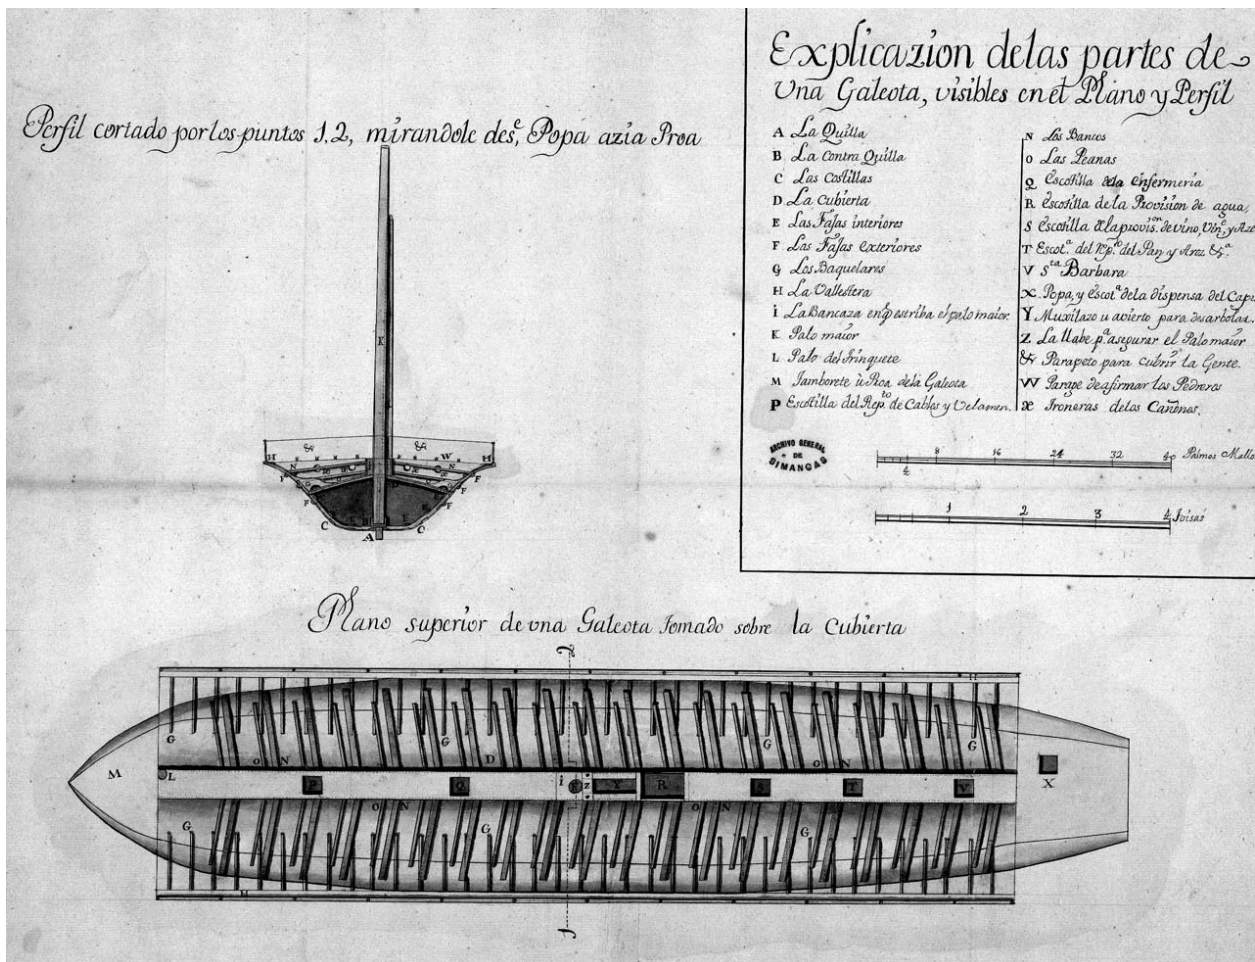 Explicazion delas partes de
Una Galeota, visibles en el Plano y Perfil
A La Quilla
B La Contra Quilla
C Las Costillas
D La Cubierta
E Las Fajas interiores
F Las Fajas exteriores
G Los Baquelares
H La Vallestera
i La Bancaza en q.e estriba el palo maior
K Palo maior
L Palo del Trinquete
M Tamborete ù Proa dela Galeota
P Escotilla del Rep.to de Cables y Velamen.
N Los Bancos
O Las Peanas
Q Escotilla dela enfermeria
R Escotilla de la Provision de agua
S Escotilla de la provis.on de vino, Vin.e y Aze
T Escot.a del Rep.to del Pan y Aroz &.a
V S.ta Barbara
X Popa, y Escot.a dela dispensa del Capi
Y Muxilazo u avierto para desarbolar.
Z La llabe p.a asegurar el Palo maior
& Parapeto para cubrir la Gente.
W Parage de afirmar los Pedreros
æ Troneras delos Cañones.
ARCHIVO GENERAL
DE
SIMANCAS
4 8 16 24 32 40 Palmos Mallo
1 2 3 4
Perfil cortado por los puntos 1,2, mirandole des.e Popa azia Proa
K
& &
H N W N H
F F
C C
A
Plano superior de una Galeota Tomado sobre la Cubierta
2
H
G G G G
O N D O N
M L P Q i K Z Y R S T V X
O N O N
G G G
H
1